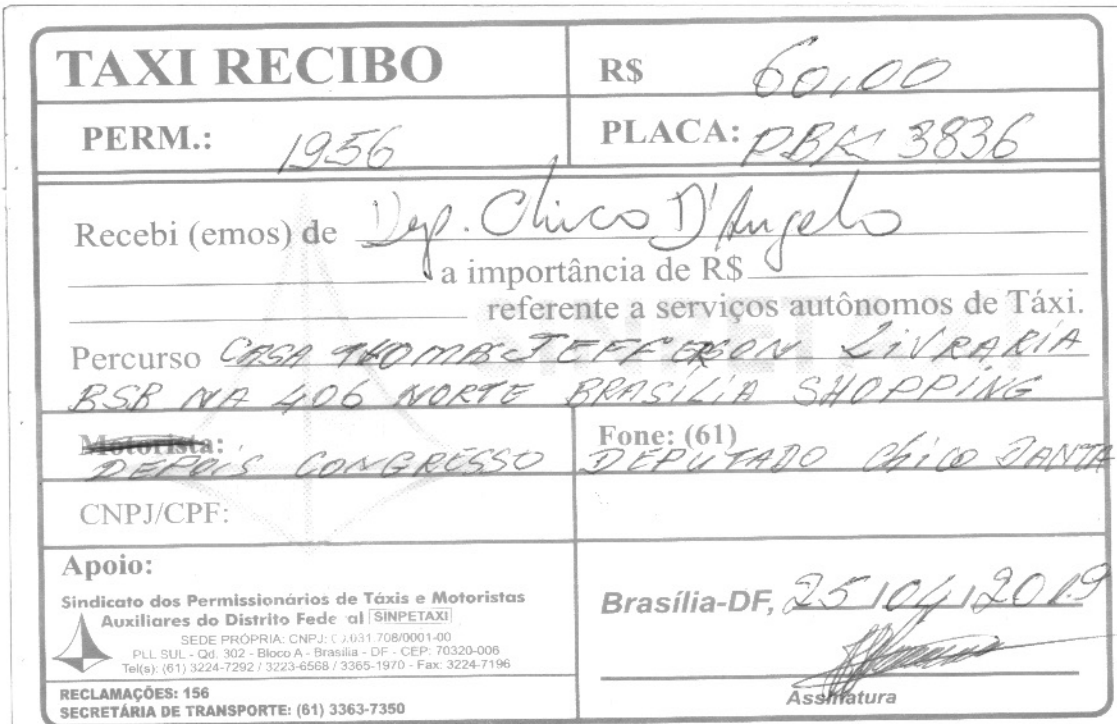 TAXI RECIBO
R$ 60,00
PERM.: 1956
PLACA: PBK 3836
Recebi (emos) de Dep. Chico D'Angelo
a importância de R$
referente a serviços autônomos de Táxi.
Percurso CASA THOMAS JEFFERSON LIVRARIA
BSB NA 406 NORTE BRASÍLIA SHOPPING
Motorista:
DEPOIS CONGRESSO
Fone: (61)
DEPUTADO CHICO DANTA
CNPJ/CPF:
Apoio:
Sindicato dos Permissionários de Táxis e Motoristas
Auxiliares do Distrito Fede al SINPETAXI
SEDE PRÓPRIA: CNPJ: .031.708/0001-00
PLL SUL - Qd. 302 - Bloco A - Brasilia - DF - CEP: 70320-006
Tel(s): (61) 3224-7292 / 3223-6568 / 3365-1970 - Fax: 3224-7196
RECLAMAÇÕES: 156
SECRETÁRIA DE TRANSPORTE: (61) 3363-7350
Brasília-DF, 25/04/2019
Assinatura